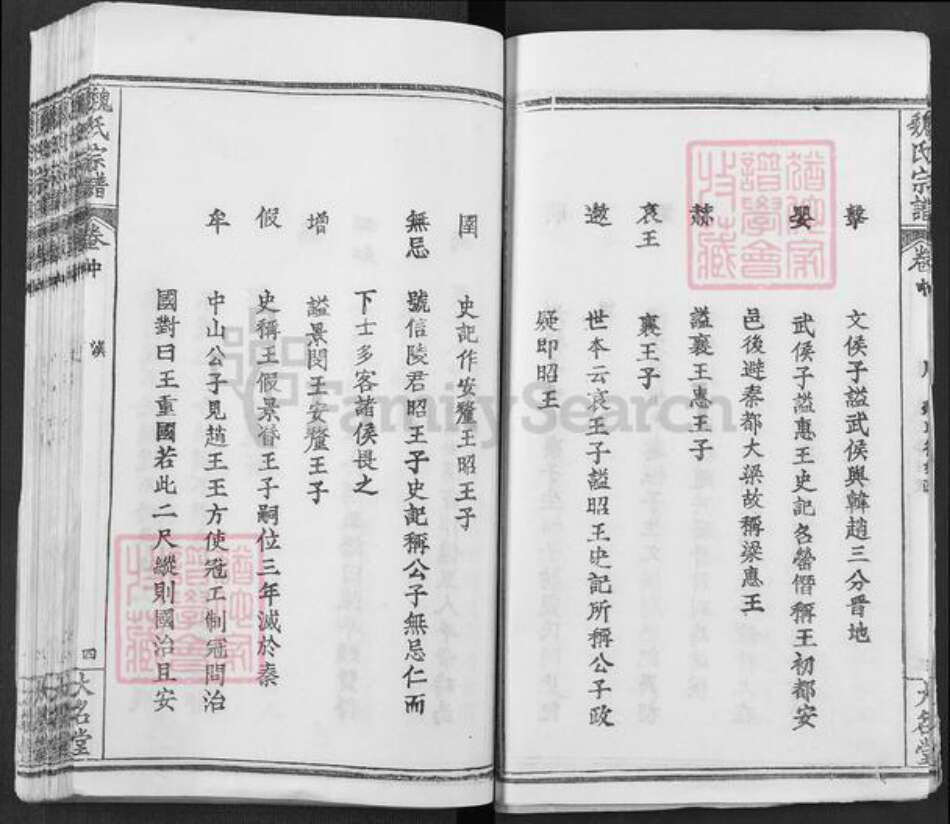 魏氏宗譜
卷中
大名堂
擊 文侯子謚武侯與韓趙三分晉地
罃 武侯子謚惠王史記名罃僭稱王初都安
邑後避秦都大梁故稱梁惠王
赫 謚襄王惠王子
哀王 襄王子
遫 世本云哀王子謚昭王史記所稱公子政
疑即昭王
圉 史記作安釐王昭王子
無忌 號信陵君昭王子史記稱公子無忌仁而
下士多客諸侯畏之
增 謚景閔王安釐王子
假 史稱王假景湣王子嗣位三年滅於秦
牟 中山公子見趙王王方使冠工制冠問治
國對曰王重國若此二尺縱則國治且安
魏氏宗譜
卷中
漢
四
大名堂
猶他家譜學會收藏
猶他家譜學會收藏
FamilySearch